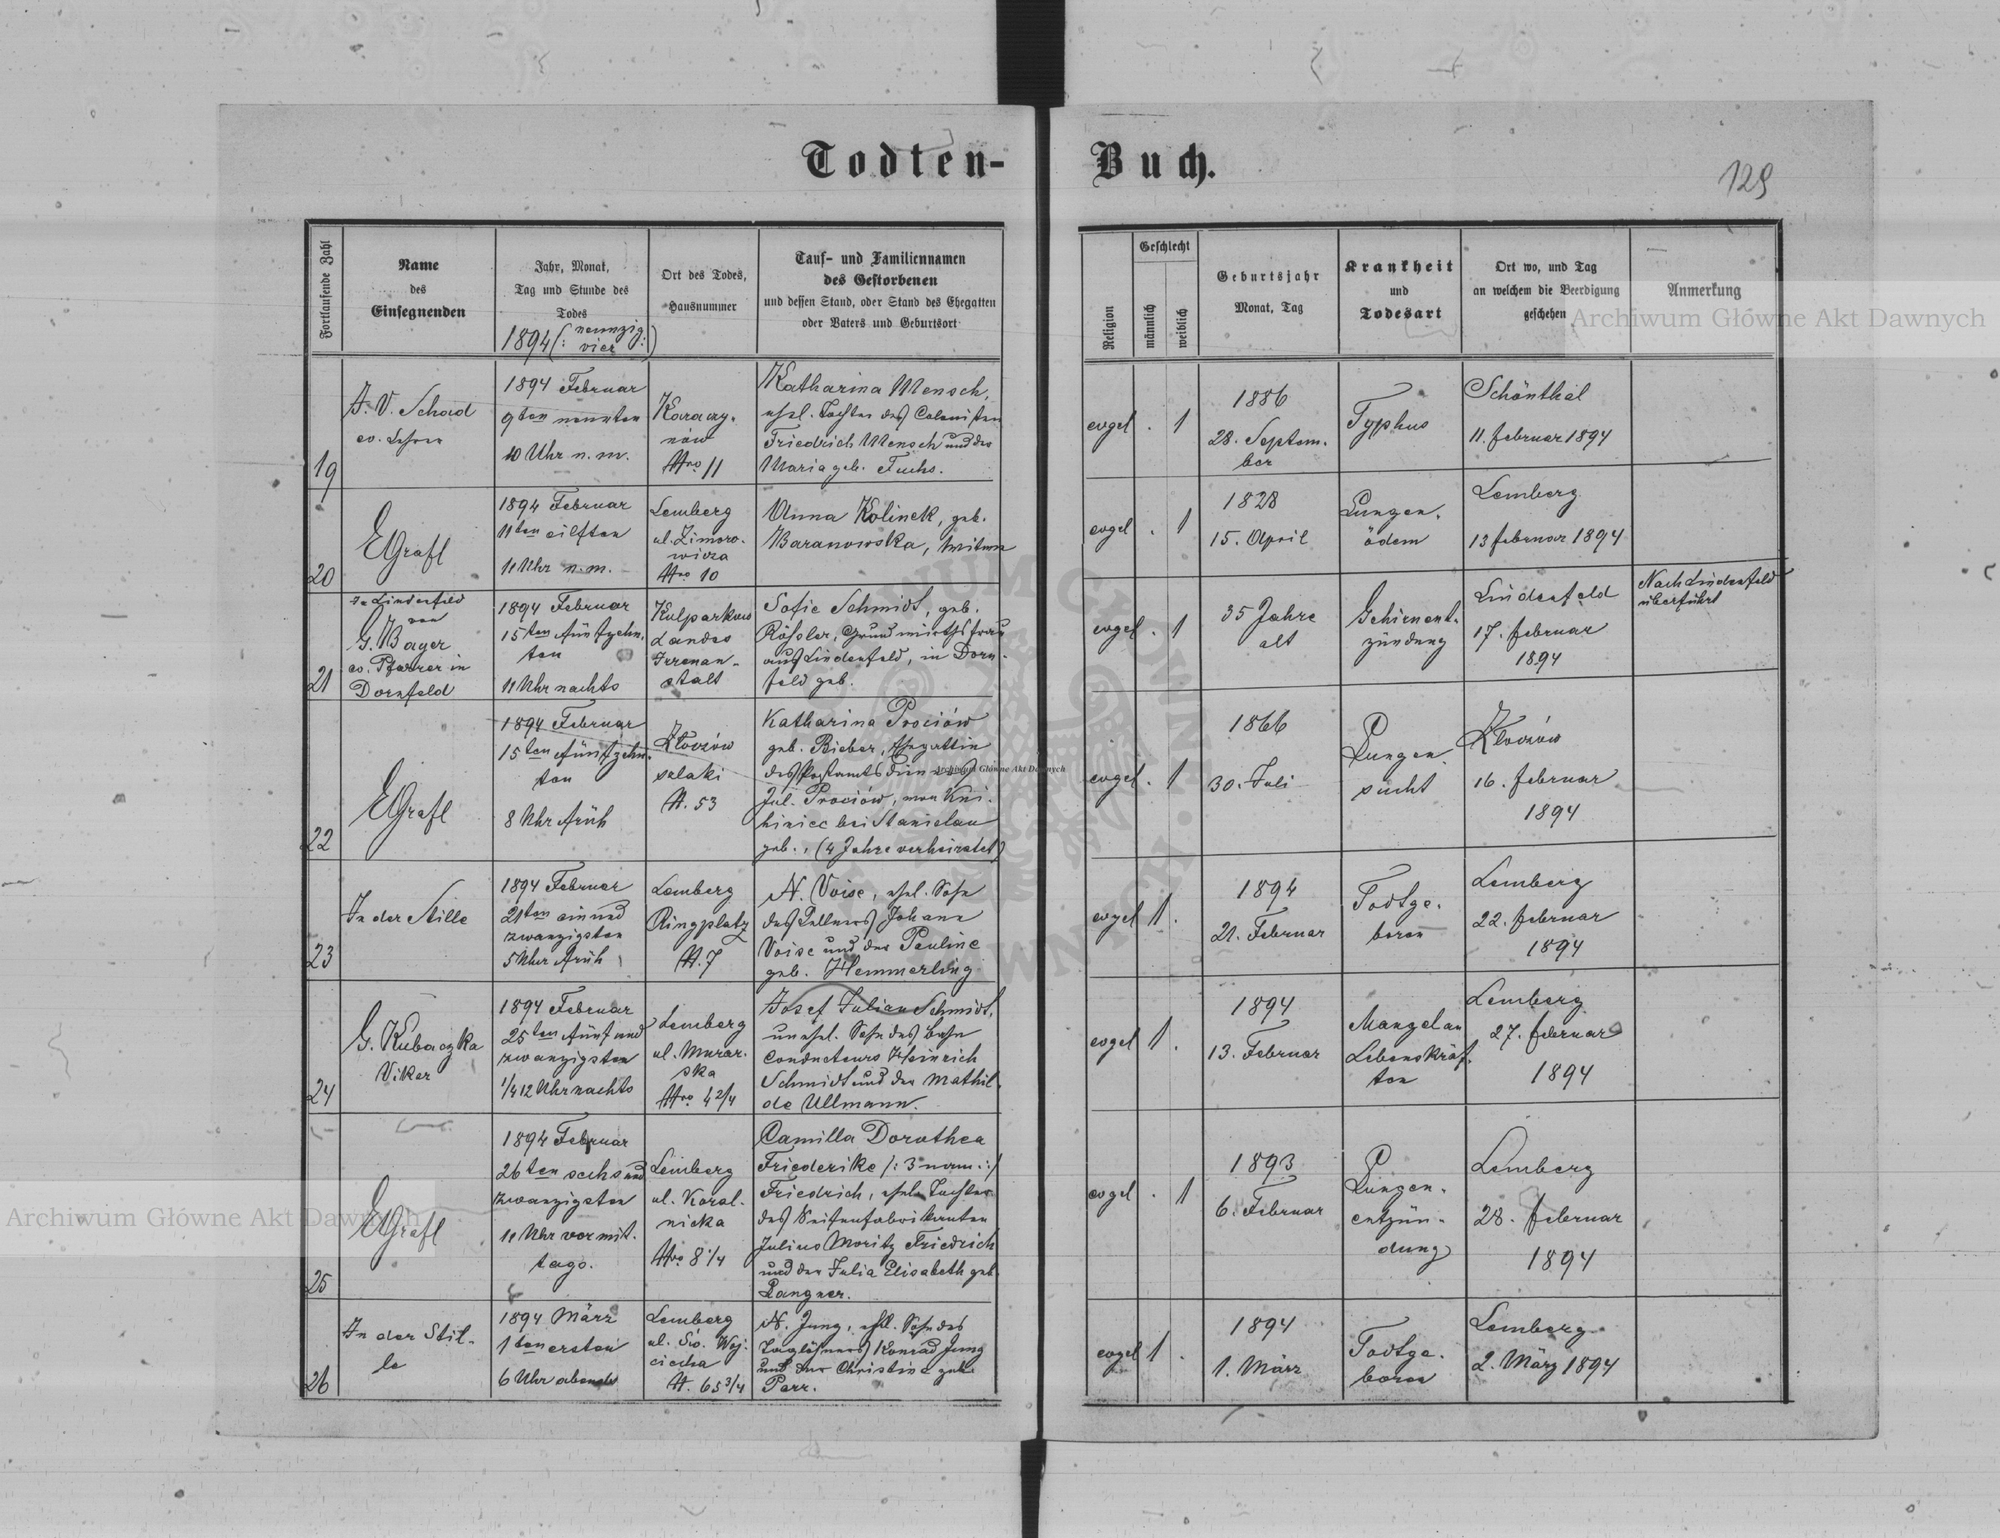 Todten-Buch.
129
Fortlaufende Zahl
Name
des
Einsegnenden
Jahr, Monat,
Tag und Stunde des
Todes
1894 (: neunzig
vier :)
Ort des Todes,
Hausnummer
Tauf- und Familiennamen
des Gestorbenen
und dessen Stand, oder Stand des Ehegatten
oder Vaters und Geburtsort
Religion
Geschlecht
männlich
weiblich
Geburtsjahr
Monat, Tag
Krankheit
und
Todesart
Ort wo, und Tag
an welchem die Beerdigung
geschehen
Anmerkung
19
J. V. Schad
ev. Lehrer
1894 Februar
9ten neunten
10 Uhr n. m.
Karaczy-
nów
Nro 11
Katharina Mensch,
ehel. Tochter des Colonisten
Friedrich Mensch und der
Maria geb. Fuchs.
evgel . 1
1886
28. Septem-
ber
Typhus
Schönthal
11. Februar 1894
20
EGrafl
1894 Februar
11ten eilften
11 Uhr n. m.
Lemberg
ul. Zimoro-
wicza
Nro 10
Anna Kolinek, geb.
Baranowska, Witwe
evgel . 1
1828
15. April
Lungen-
ödem
Lemberg
13 Februar 1894
21
In Lindenfeld
von
G. Bayer
ev. Pfarrer in
Dornfeld
1894 Februar
15ten fünfzehn-
ten
11 Uhr nachts
Kulparkow
Landes
Irrenan-
stalt
Sofie Schmidt, geb.
Rößler, Grundwirthsfrau
aus Lindenfeld, in Dorn-
feld geb.
evgel . 1
35 Jahre
alt
Gehirnent-
zündung
Lindenfeld
17. Februar
1894
Nach Lindenfeld
überführt
22
EGrafl
1894 Februar
15ten fünfzehn-
ten
8 Uhr früh
Złoczów
szlaki
N. 53
Katharina Prociów
geb. Bieber, Ehegattin
des Postamtsdieners
Jul. Prociów, von Kni-
hinicc bei Stanislau
geb., (4 Jahre verheiratet)
evgel . 1
1866
30. Juli
Lungen-
sucht
Złoczów
16. Februar
1894
23
In der Stille
1894 Februar
21ten einund
zwanzigsten
5 Uhr früh
Lemberg
Ringplatz
N. 7
N. Voise, ehel. Sohn
des Kellners Johann
Voise und der Pauline
geb. Hemmerling
evgel 1 .
1894
21. Februar
Todtge-
boren
Lemberg
22. Februar
1894
24
G. Kubaczka
Vikar
1894 Februar
25ten fünf und
zwanzigsten
1/4 12 Uhr nachts
Lemberg
ul. Murar-
ska
Nro 42/4
Josef Julian Schmidt,
unehel. Sohn des Bahn
conducteurs Heinrich
Schmidt und der Mathil-
de Ullmann.
evgel 1 .
1894
13. Februar
Mangel an
Lebenskräf-
ten
Lemberg
27. Februar
1894
25
EGrafl
1894 Februar
26ten sechs und
zwanzigsten
11 Uhr vormit-
tags.
Lemberg
ul. Koral-
nicka
Nro 8 1/4
Camilla Dorothea
Friederike /: 3 nam. :/
Friedrich, ehel. Tochter
des Seifenfabrikanten
Julius Moritz Friedrich
und der Julia Elisabeth geb.
Langner.
evgel . 1
1893
6. Februar
Lungen-
entzün-
dung
Lemberg
28. Februar
1894
26
In der Stil-
le
1894 März
1ten ersten
6 Uhr abends
Lemberg
ul. Św. Woj-
ciecha
N. 65 3/4
N. Jung, ehel. Sohn des
Taglöhners Konrad Jung
und der Christine geb.
Parr.
evgel 1 .
1894
1. März
Todtge-
boren
Lemberg
2. März 1894
Archiwum Główne Akt Dawnych
Archiwum Główne Akt Dawnych
Archiwum Główne Akt Dawnych